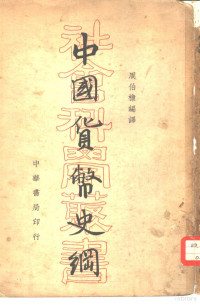 中國貨幣史綱
社會科學叢書
周伯棣編譯
中華書局印行